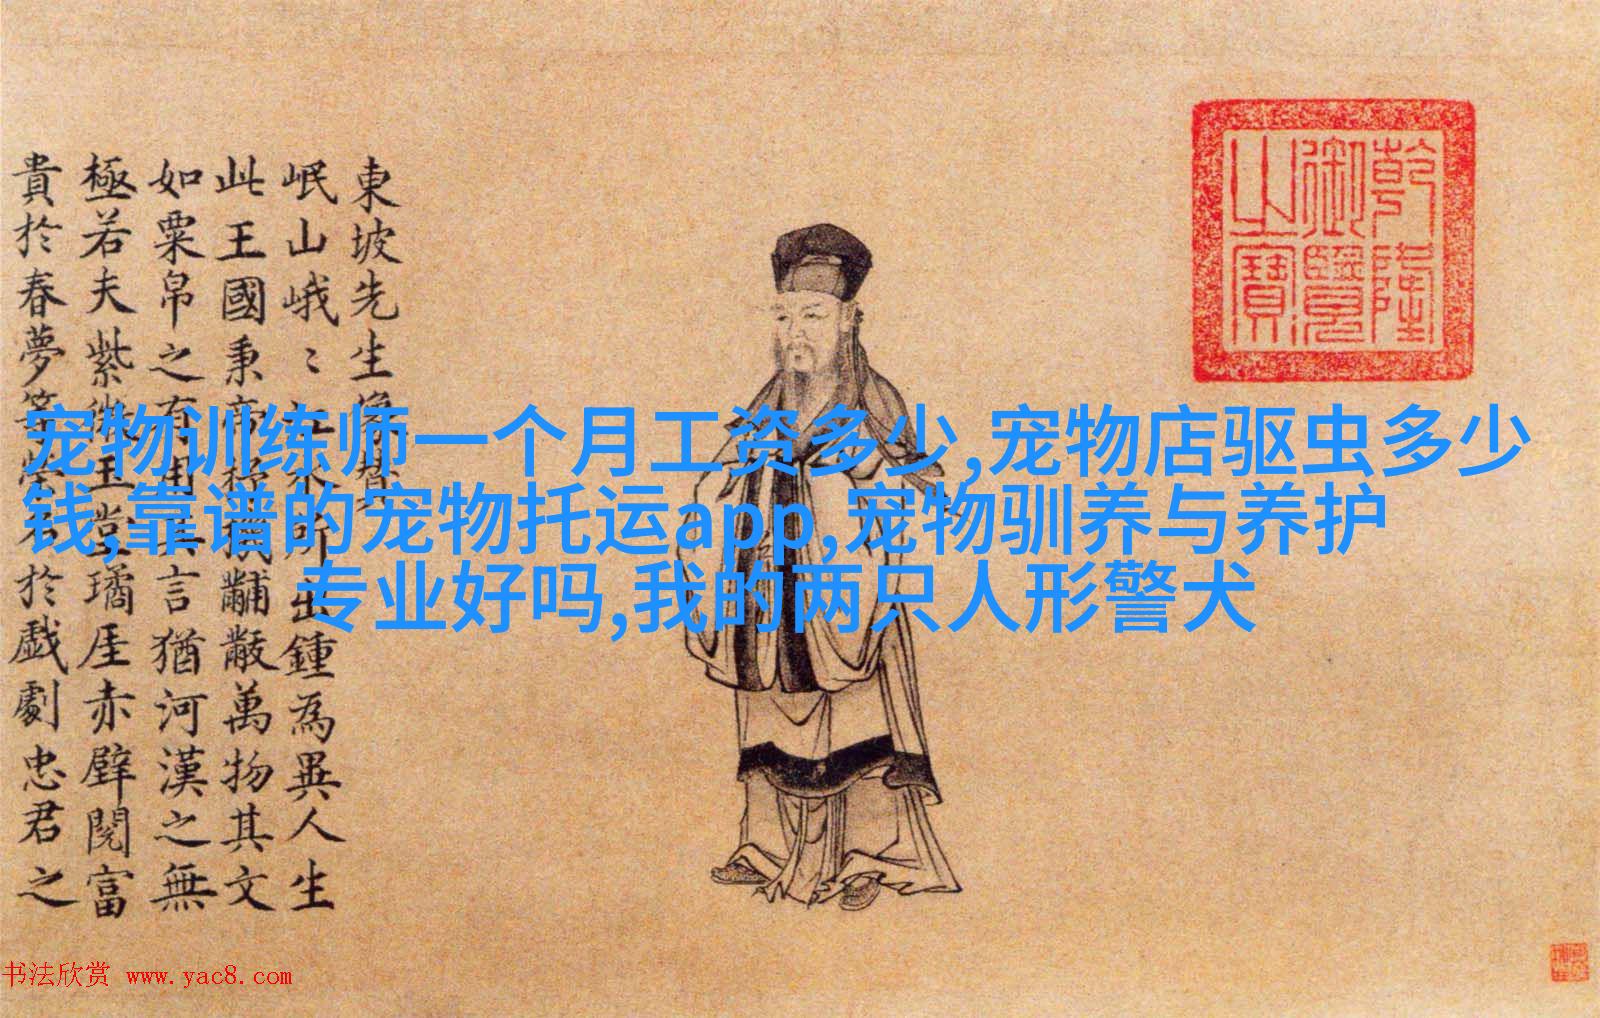 東坡先生像贊
岷山峨〻江水所出鍾為異人生
此王國秉帝機黼黻萬物其文
如粟帛之有用其言猶河漢之無
極若夫紫微玉堂璚厓赤壁閱富
貴於春夢等榮名於戲劇忠君之
乾隆
御覽
之寶
宠物训练师一个月工资多少,宠物店驱虫多少
钱,靠谱的宠物托运app,宠物驯养与养护
专业好吗,我的两只人形警犬
书法欣赏 www.yac8.com